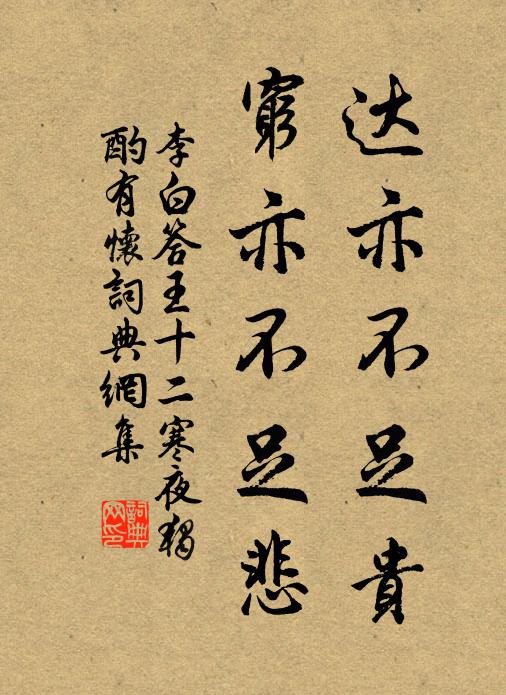 达亦不足貴
窮亦不足悲
李白答王十二寒夜獨
酌有懷詞典網集
詞典
网印